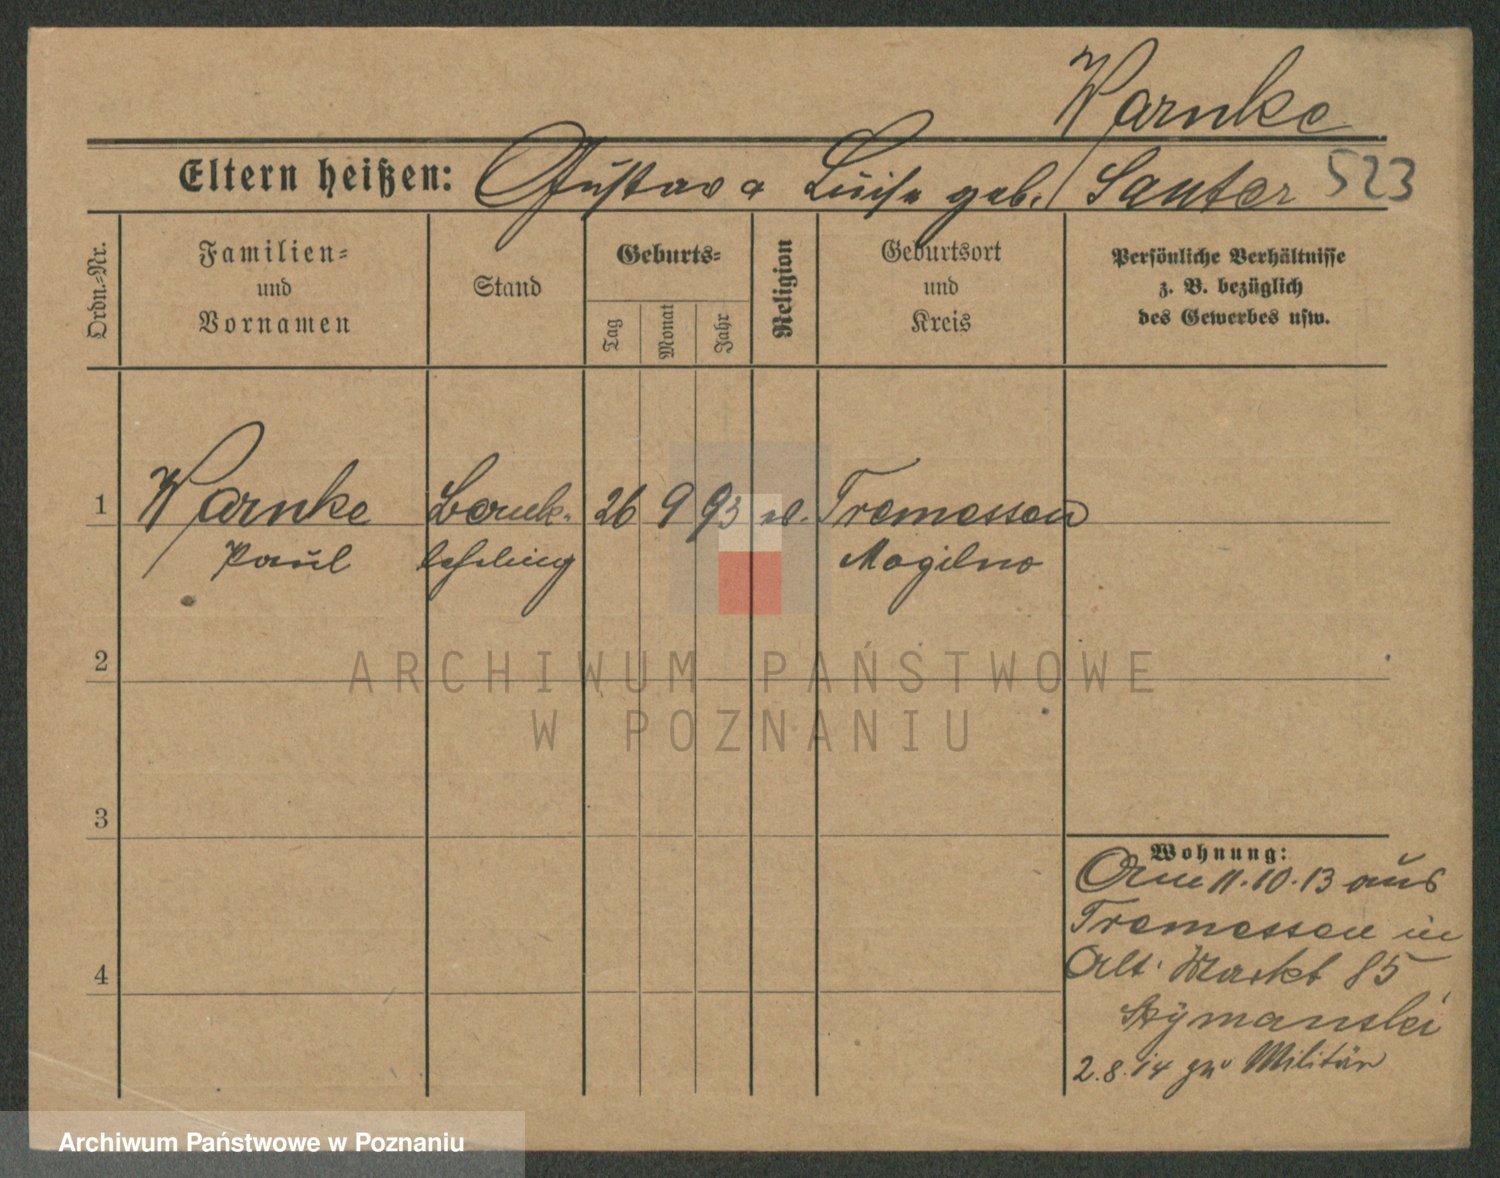 Warnke
Eltern heißen: Gustav & Luise geb. Sauter 523
Ordn.-Nr.
Familien-
und
Vornamen
Stand
Geburts-
Tag
Monat
Jahr
Religion
Geburtsort
und
Kreis
Persönliche Verhältnisse
z. B. bezüglich
des Gewerbes usw.
1 Warnke 26 9 93 Tremessen
Paul lehrling Mogilno
2
3
4
Wohnung:
Am 11.10.13 aus
Tremessen in
Alt. Markt 85
2.8.14 zu Militär
ARCHIWUM PAŃSTWOWE
W POZNANIU
Archiwum Państwowe w Poznaniu